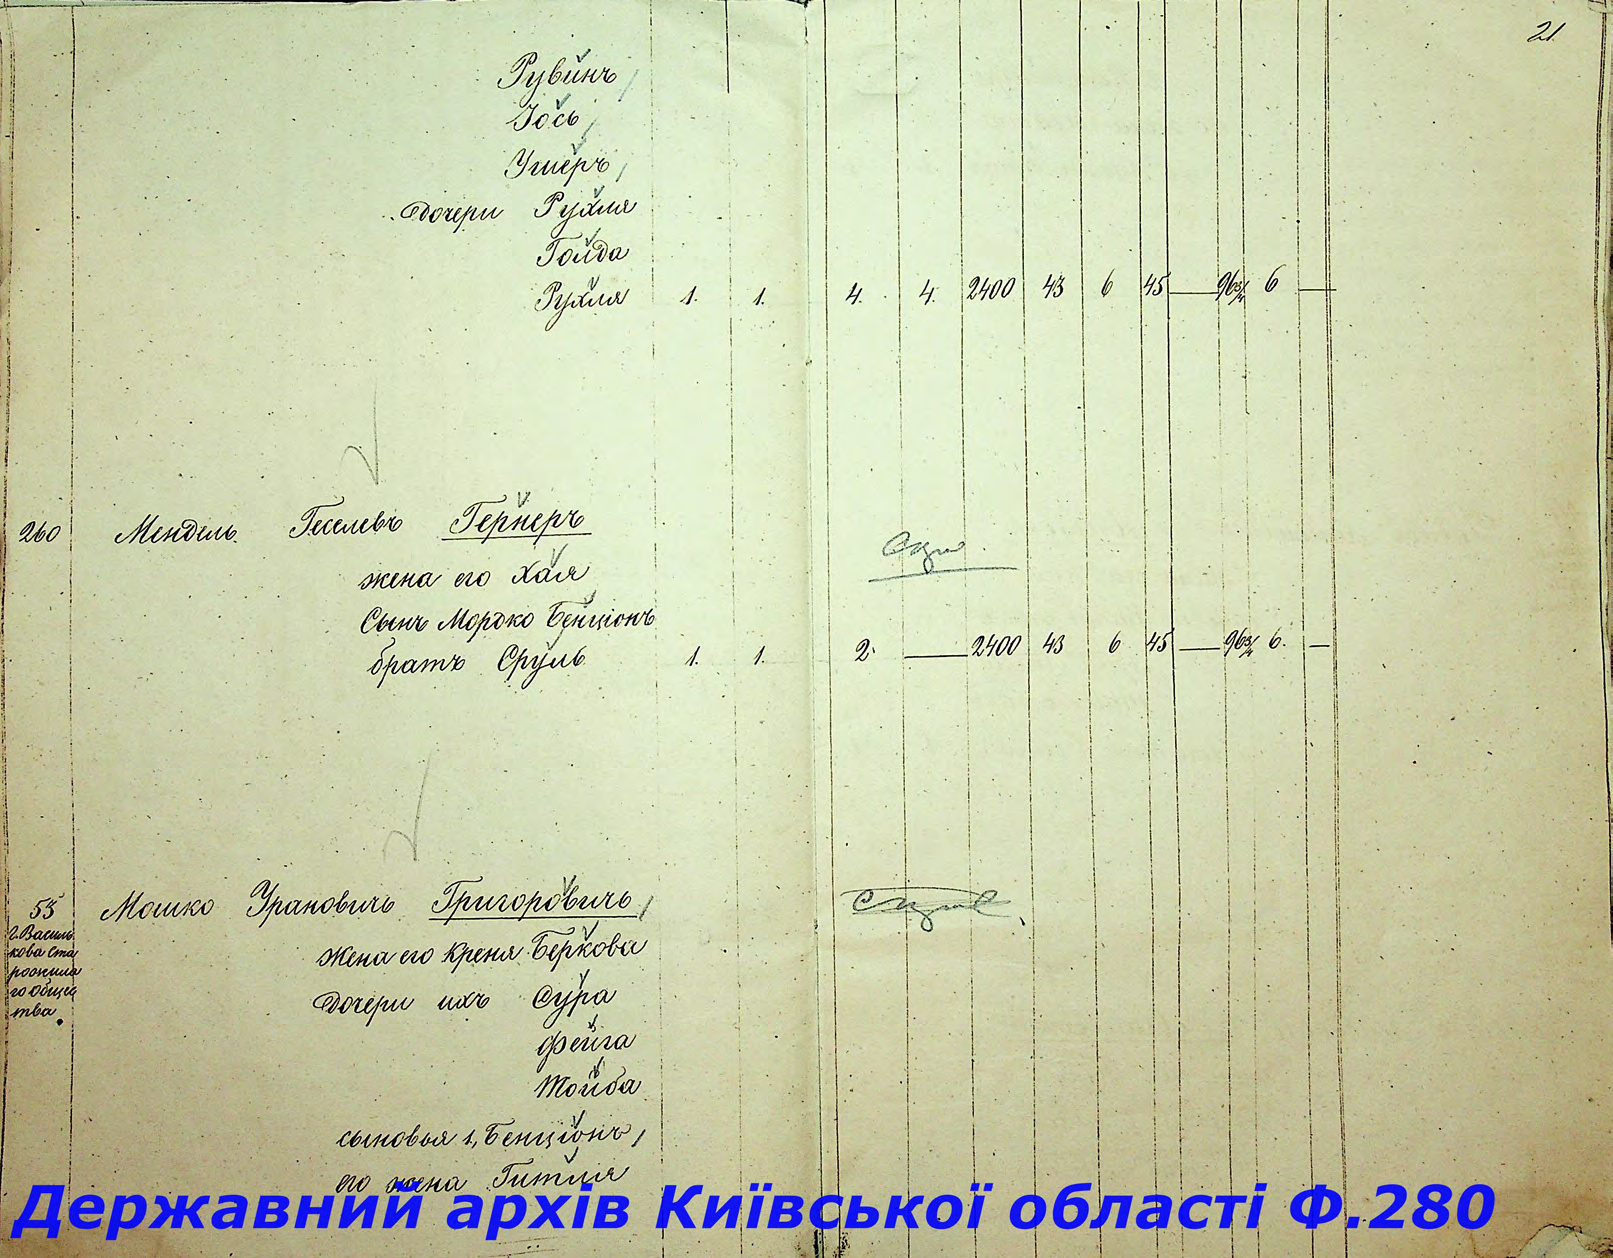 21.
Рувинъ
Іось
Ушеръ
дочери Рухля
Голда
Рухля 1. 1. 4. 4. 2400 43 6 45 — 96 3/4 6 —
260 Мендель Геселевъ Гернеръ
жена его Хая
Сынъ Мордко Бенціонъ
братъ Сруль 1. 1. 2. — 2400 43 6 45 — 96 3/4 6. —
53 Мошко Урановичъ Григоровичъ
г. Василь
кова ста
рожила
го общес
тва.
жена его Креня Беркова
дочери ихъ Сура
Фейга
Тойба
сыновья 1, Бенціонъ
его жена Гитля
Державний архів Київської області Ф.280